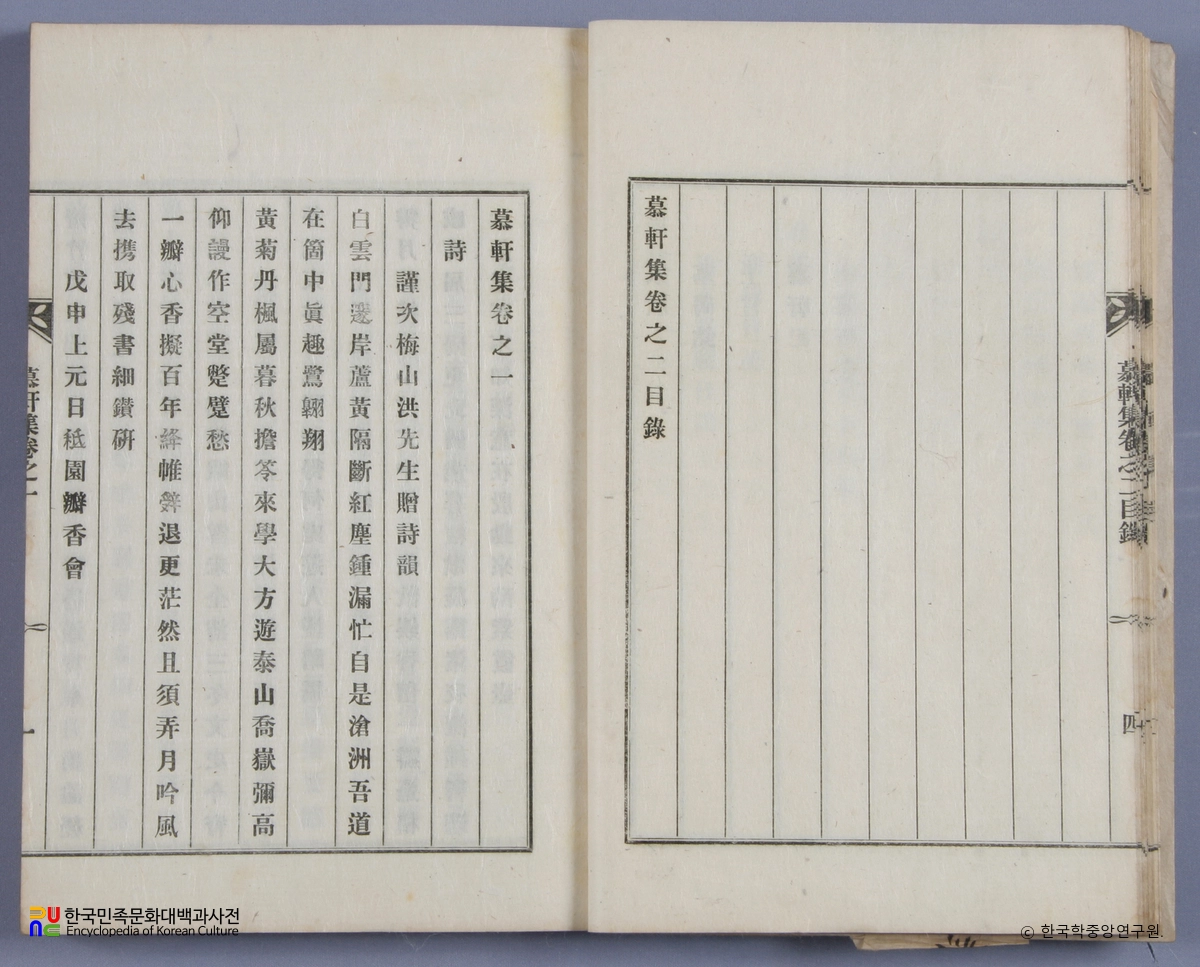 慕軒集卷之二目錄
慕軒集卷之二目錄
四
慕軒集卷之一
詩
謹次梅山洪先生贈詩韻
白雲門邃岸蘆黃隔斷紅塵鍾漏忙自是滄洲吾道
在箇中眞趣鷺翺翔
黃菊丹楓屬暮秋擔笭來學大方遊泰山喬嶽彌高
仰謾作空堂躄躄愁
一瓣心香擬百年絳帷辭退更茫然且須弄月吟風
去携取殘書細鑽硏
戊申上元日紙園瓣香會
慕軒集卷之一
一
한국민족문화대백과사전
Encyclopedia of Korean Culture
© 한국학중앙연구원.